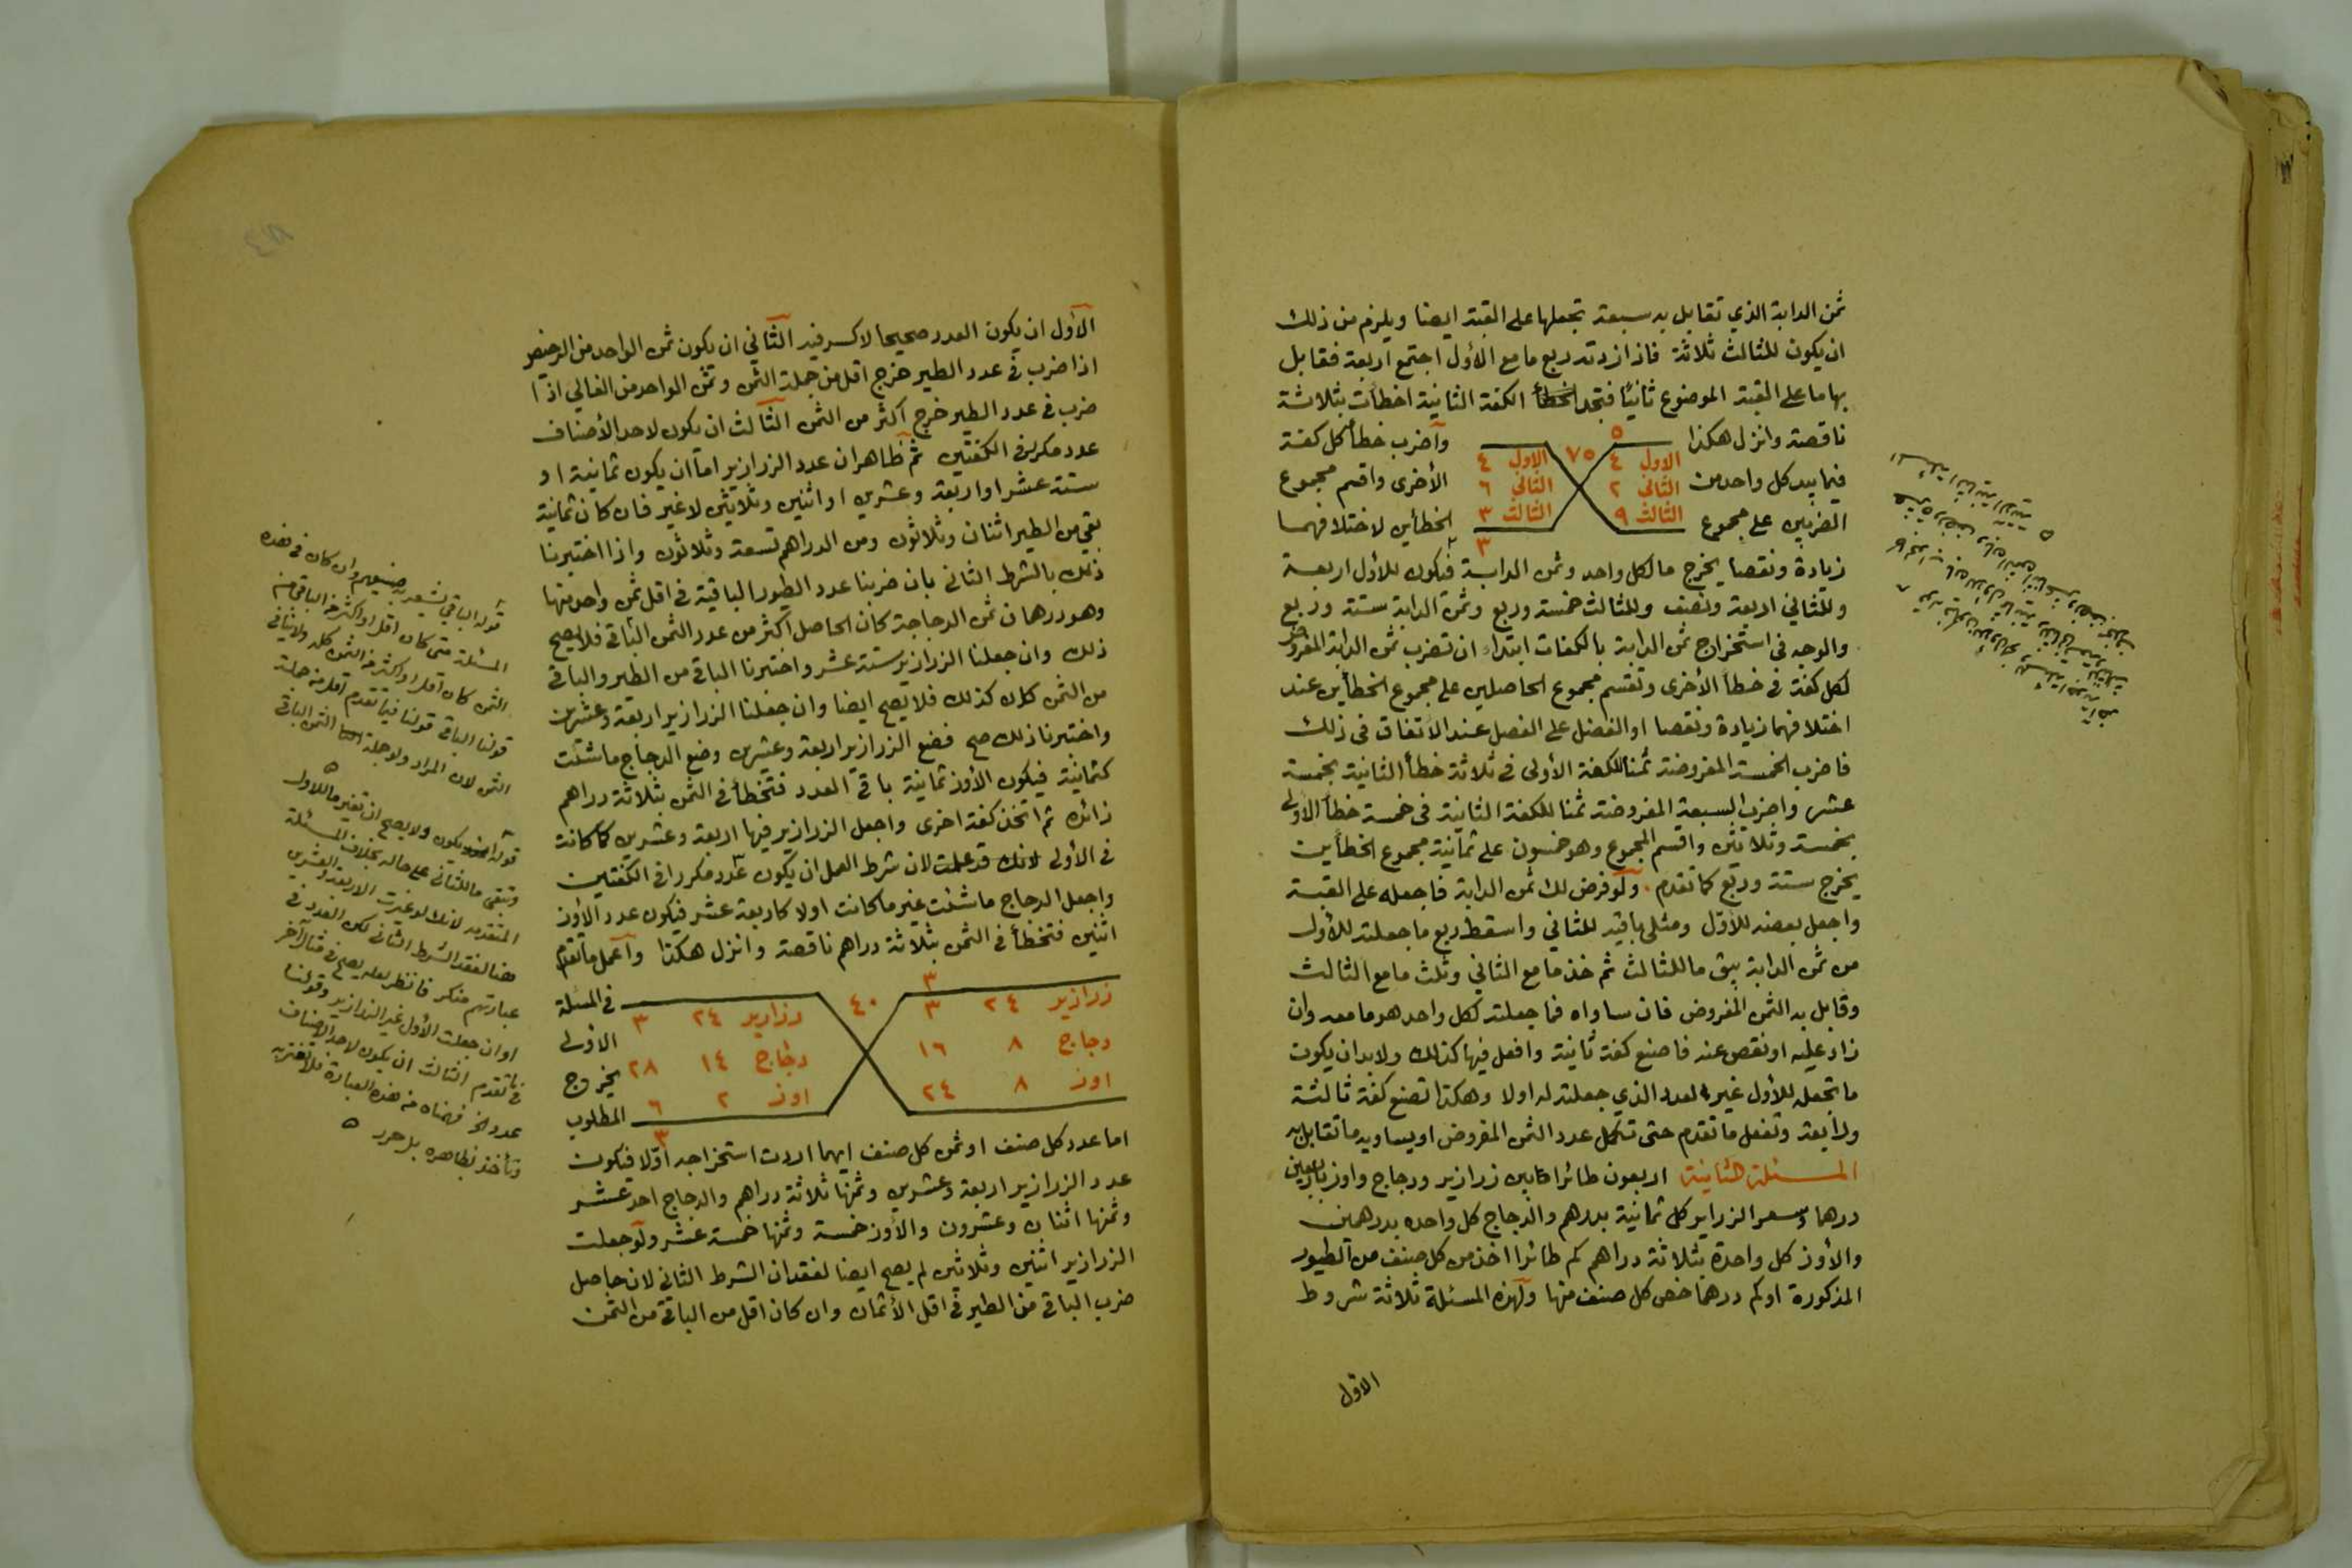 ثمن الدابة الذي تقابل به سبعة تجعلها على القبة ايضا ويلزم من ذلك
ان يكون للثالث ثلاثة فاذا زدته ربع ما مع الأول اجتمع اربعة فقابل
بها ما على القبة الموضوع ثانيًا فتجد الكفة الثانية اخطأت بثلاثة
ناقصة وانزل هكذا
واضرب خطأ كل كفة
فيما بيد كل واحد من
الأخرى واقسم مجموع
الضربين على مجموع
الخطأين لاختلافهما
٥
الاول ٤ ٧٥ الاول ٤
الثاني ٢ الثاني ٦
الثالث ٩ الثالث ٣
٣
زيادة ونقصا يخرج ما لكل واحد وثمن الدابة فيكون للأول اربعة
وللثاني اربعة ونصف وللثالث خمسة وربع وثمن الدابة ستة وربع
والوجه في استخراج ثمن الدابة بالكفات ابتداء ان تضرب ثمن الدابة المفروض
لكل كفة في خطأ الأخرى وتقسم مجموع الحاصلين على مجموع الخطأين عند
اختلافهما زيادة ونقصا او الفضل على الفضل عند الاتفاق في ذلك
فاضرب الخمسة المفروضة ثمنا للكفة الأولى في ثلاثة خطأ الثانية بخمسة
عشر واضرب السبعة المفروضة ثمنا للكفة الثانية في خمسة خطأ الأولى
بخمسة وثلاثين واقسم المجموع وهو خمسون على ثمانية مجموع الخطأين
يخرج ستة وربع كما تقدم . ولو فرض لك ثمن الدابة فاجعله على القبة
واجعل بعضه للأول ومثلي باقيه للثاني واسقط ربع ما جعلته للأول
من ثمن الدابة يبق ما للثالث ثم خذ ما مع الثاني وثلث ما مع الثالث
وقابل به الثمن المفروض فان ساواه فما جعلته لكل واحد هو ما معه وان
زاد عليه او نقص عنه فاصنع كفة ثانية وافعل فيها كذلك ولا بد ان يكون
ما تجعله للأول غير العدد الذي جعلته له اولا وهكذا تصنع كفة ثالثة
ورابعة وتفعل ما تقدم حتى تكمل عدد الثمن المفروض او يساويه ما تقابل به
المسئلة الثانية اربعون طائرا مابين زرازير ودجاج واوز باربعين
درهما وسعر الزرازير كل ثمانية بدرهم والدجاج كل واحده بدرهمين
والأوز كل واحدة بثلاثة دراهم كم طائرا اخذ من كل صنف من الطيور
المذكورة اوكم درهما خص كل صنف منها ولهذه المسئلة ثلاثة شروط
الاول
الأول ان يكون العدد صحيحا لا كسر فيه الثاني ان يكون ثمن الواحد من الرخيص
اذا ضرب في عدد الطير خرج اقل من جملة الثمن وثمن الواحد من الغالي اذا
ضرب في عدد الطير خرج اكثر من الثمن الثالث ان يكون لاحد الأصناف
عدد مكرر في الكفتين ثم ظاهر ان عدد الزرازير اما ان يكون ثمانية او
ستة عشر او اربعة وعشرين او اثنين وثلاثين لا غير فان كان ثمانية
بقي من الطير اثنان وثلاثون ومن الدراهم تسعة وثلاثون واذا اختبرنا
ذلك بالشرط الثاني بان ضربنا عدد الطيور الباقية في اقل ثمن واحد منها
وهو درهمان ثمن الدجاجة كان الحاصل اكثر من عدد الثمن الباقي فلا يصح
ذلك وان جعلنا الزرازير ستة عشر واختبرنا الباقي من الطير والباقي
من الثمن كان كذلك فلا يصح ايضا وان جعلنا الزرازير اربعة وعشرين
واختبرنا ذلك صح فضع الزرازير اربعة وعشرين وضع الدجاج ما شئت
كثمانية فيكون الأوز ثمانية باقي العدد فتخطأ في الثمن بثلاثة دراهم
زائدة ثم اتخذ كفة اخرى واجعل الزرازير فيها اربعة وعشرين كما كانت
في الأولى لانك قد علمت لان شرط العمل ان يكون عدد مكررا في الكفتين
واجعل الدجاج ما شئت غير ما كانت اولا كاربعة عشر فيكون عدد الأوز
اثنين فتخطأ في الثمن بثلاثة دراهم ناقصة وانزل هكذا واعمل ما تقدم
في المسئلة
الاولى
يخرج
المطلوب
٣
زرازير ٢٤ ٣ ٤٠ زرازير ٢٤ ٣
دجاج ٨ ١٦ دجاج ١٤ ٢٨
اوز ٨ ٢٤ اوز ٢ ٦
٣
اما عدد كل صنف او ثمن كل صنف ايهما اردت استخراجه اولا فيكون
عدد الزرازير اربعة وعشرين وثمنها ثلاثة دراهم والدجاج احد عشر
وثمنها اثنان وعشرون والأوز خمسة وثمنها خمسة عشر ولو جعلت
الزرازير اثنين وثلاثين لم يصح ايضا لفقدان الشرط الثاني لان حاصل
ضرب الباقي من الطير في اقل الأثمان وان كان اقل من الباقي من الثمن
قوله الباقي وان كان في هذه
المسئلة متى كان اقل او اكثر من الباقي من
الثمن كان اقل او اكثر من الثمن كله
قولنا الباقي قولنا فيما تقدم اقل من جملة
الثمن لان المراد ولو جملة الثمن الباقي
قوله يكون ولا يصح ان تغير ما للاول
وتبقى ما للثاني على حاله بخلاف المسئلة
المتقدمة لانك لو غيرت الاربعة والعشرين
هنا لفقد الشرط الثاني لكن العدد في
عبارتهم منكر فانظر لعله يصح في مثال آخر
او ان جعلت الأول غير الزرازير وقولنا
فيما تقدم الثالث ان يكون لاحد الاصناف
عدد الخ فهمناه من هذه العبارة فلا تغتر به
وتأخذ بظاهره بل حرر ه